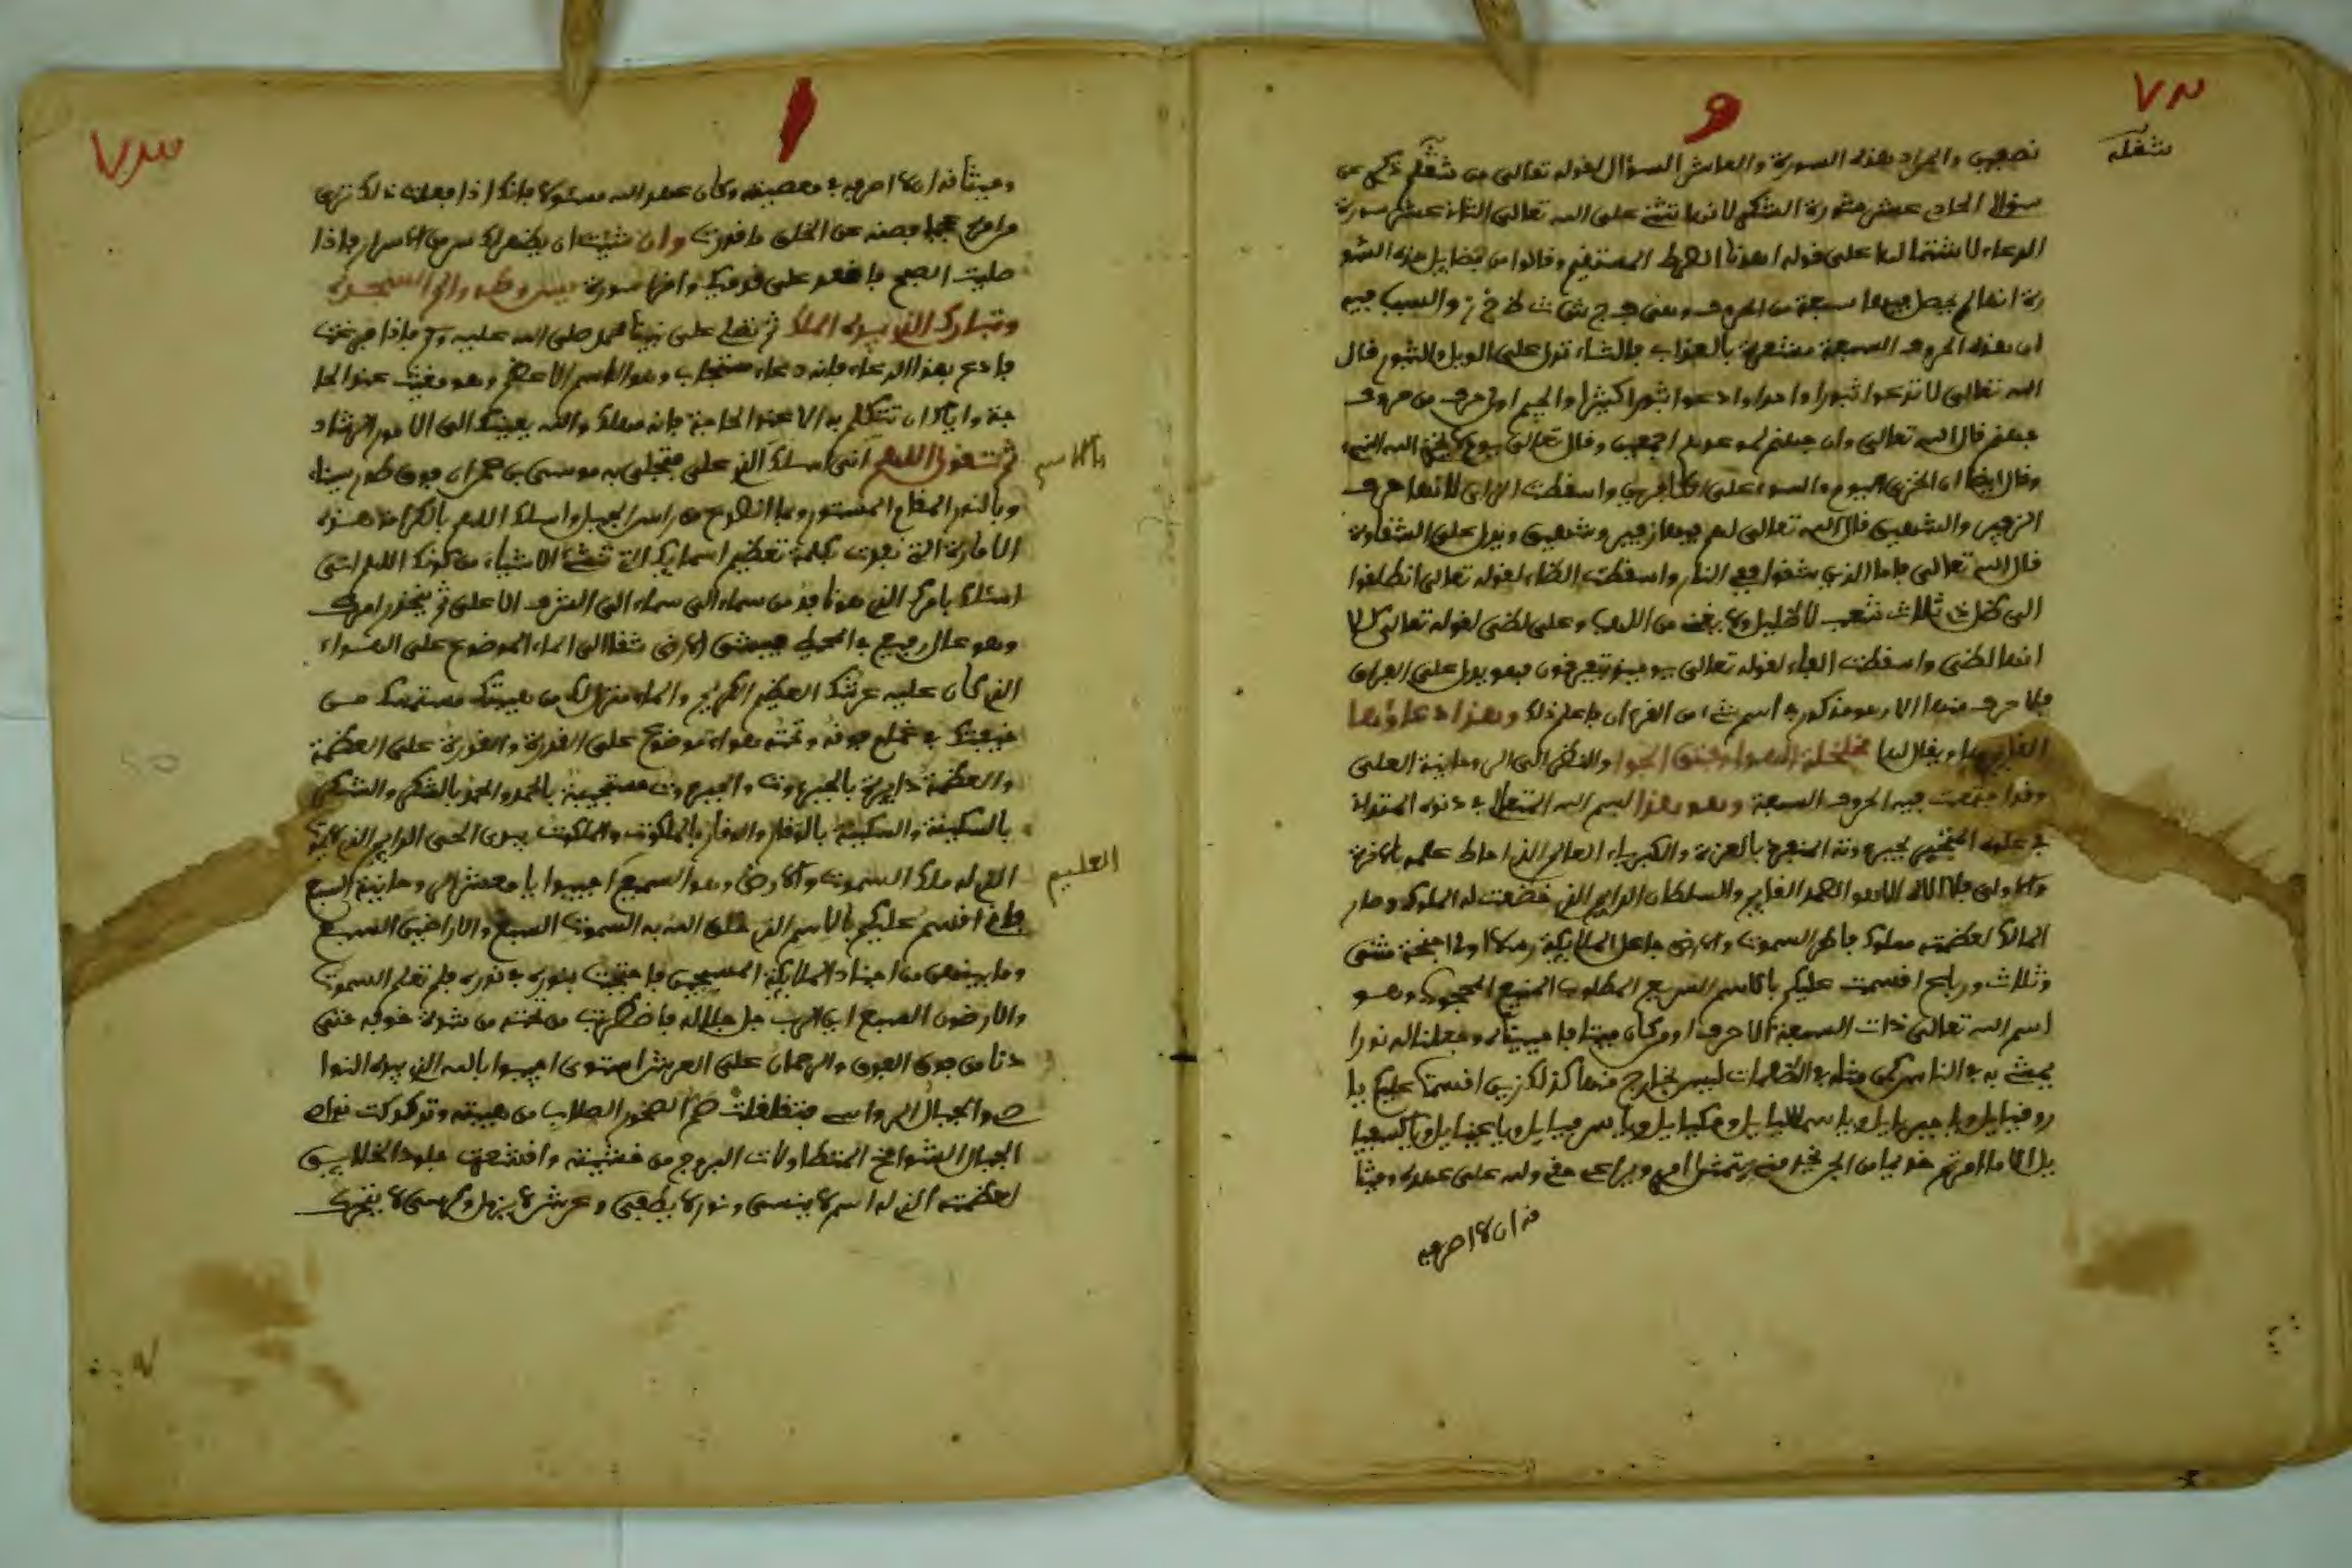 ٧٢
و
شغله
نصفين والمراد بهذه السورة والعاشر السؤال لقوله تعالى من شغله ذكري عن
سؤالي الحادي عشر سورة الشكر لانها تثنى على الله تعالى الثاني عشر سورة
الدعاء لاشتمالها على قوله اهدنا الصراط المستقيم وقالوا من فضايل هذه السو
رة انها لم يحصل فيها سبعة من الحروف وهي ف ج ش ث ظ خ ز والسبب فيه
ان هذه الحروف السبعة مشعرة بالعذاب فالثاء تدل على الويل والثبور قال
الله تعالى لا تدعوا ثبورا واحدا وادعوا ثبورا كثيرا والجيم اول حرف من حروف
جهنم قال الله تعالى وان جهنم لموعدهم اجمعين وقال تعالى يوم لا يخزي الله النبيء
وقال ايضا ان الخزي اليوم والسوء على الكافرين واسقطت الزاي لانها حرف
الزفير والشهيق قال الله تعالى لهم فيها زفير وشهيق ويدل على الشقاوة
قال الله تعالى فاما الذين شقوا ففي النار واسقطت الظاء لقوله تعالى انطلقوا
الى ظل ذي ثلاث شعب لا ظليل ولا يغني من اللهب وعلى لظى لقوله تعالى كلا
انها لظى واسقطت الفاء لقوله تعالى يوميذ يتفرقون فهو يدل على الفراق
فلا حرف منها الا وهو مذكور في اسم شيء من القرءان فاعلم ذلك وهذا دعاؤها
القايم بها ويقال لها مخلخلة الهواء وفتق الجوا والنظر الى الروحانية العلى
وقد اجتمعت فيه الحروف السبعة وهو هذا بسم الله المتعال في دنوه المتدان
في علوه المتجبر بجبروته المنفرد بالعزة والكبرياء العالم الذي احاط علمه بالاخرة
والاولى فلا اله الا هو الصمد القايم والسلطان الدايم الذي خضعت له الملوك وصار
المالك لعظمته مملوك فاطر السموت والارض جاعل الملايكة رسلا اولي اجنحة مثنى
وثلاث ورباع اقسمت عليكم بالاسم السريع المطلوب المنيع المحجوب وهو
اسم الله تعالى ذات السبعة الاحرف اومن كان ميتا فاحييناه وجعلنا له نورا
يمشي به في الناس كمن مثله في الظلمات ليس بخارج منها كذلك زين اقسمت عليكم يا
روفيايل ويا جبريايل ويا سمسمايل وميكيايل ويا سرفيايل ويا عنيايل ويا كسفيا
يل الا ما امرتم خديما من الجن يخدمني يتمثل امري ويراعى حقي وله على عهد الله وميثا
قه ان لا اصرفه
٧٣
ا
وميثاقه ان لا اصرفه في معصيته وكان عهد الله مسئولا فانك اذا فعلت ذلك ترى
صليت الصبح فاقعد على قدميك واقرا سورة يس وطه والم السجدة
وتبارك الذي بيده الملك ثم تصلي على نبينا محمد صلى الله عليه وسلم فاذا فرغت
فادع بهذا الدعاء فانه دعاء مستجاب وهو الاسم الاعظم وهو مغيث عند الحا
جة واياك ان تتكلم به الا عند الحاجة فانه معك والله يعينك الى الامور الرشاد
ثم تقول اللهم اني اسلك الذي على متجلى به موسى بن عمران فوق طور سيناء
بالاسم
وبالنور المفاع المستور وبما انطرح من راس الجبل واسلك اللهم بالكرامة هذه
اسئلك بامرك الذي هو نافذ من سماء الى سماء الى الشرف الاعلى ثم ينحدر امرك
وهو عال رفيع في المحيط فيمشي الارض شقا الى الماء الموضوع على الهواء
الذي كان عليه عرشك العظيم الكريم والماء متزلزل من هيبتك مستمسك من
خيفتك في تخلع جوفه وتحته هواء موضوع على القدرة والقدرة على العظمة
والعظمة دايرة بالجبروت والجبروت مستجيبة بالحمد والحمد بالشكر والشكر
بالسكينة والسكينة بالوقار والوقار بالملكوت والملكوت بيدي الحي الدايم الذي لا يموت
الذي له ملك السموت والارض وهو السميع اجيبوا يا معشر الروحانية السبع
العليم
فاني اقسم عليكم بالاسم الذي خلق الله به السموت السبع والاراضين السبع
وما بينهن من اجناد الملايكة المسبحين فاحتجب بنوره في نوره فلم تعلم السموت
والارضون السبع اين الرب جل جلاله فاضطربت من تحته من شدة خوفه حتى
دنا من فوق الفوق والرحمان على العرش استوى اجيبوا بالله الذي بيده النوا
صي والجبال الرواسي فتقلقلت صم الصخور الصلاب من هيبته وتدكدكت نواص
الجبال الشوامخ المتطاولات البروج من خشيته واقشعرت جلود الخلايق
لعظمته الذي له اسم لا ينسى ونور لا يطفى وعرش لا يزول وكرسى لا يتحرك